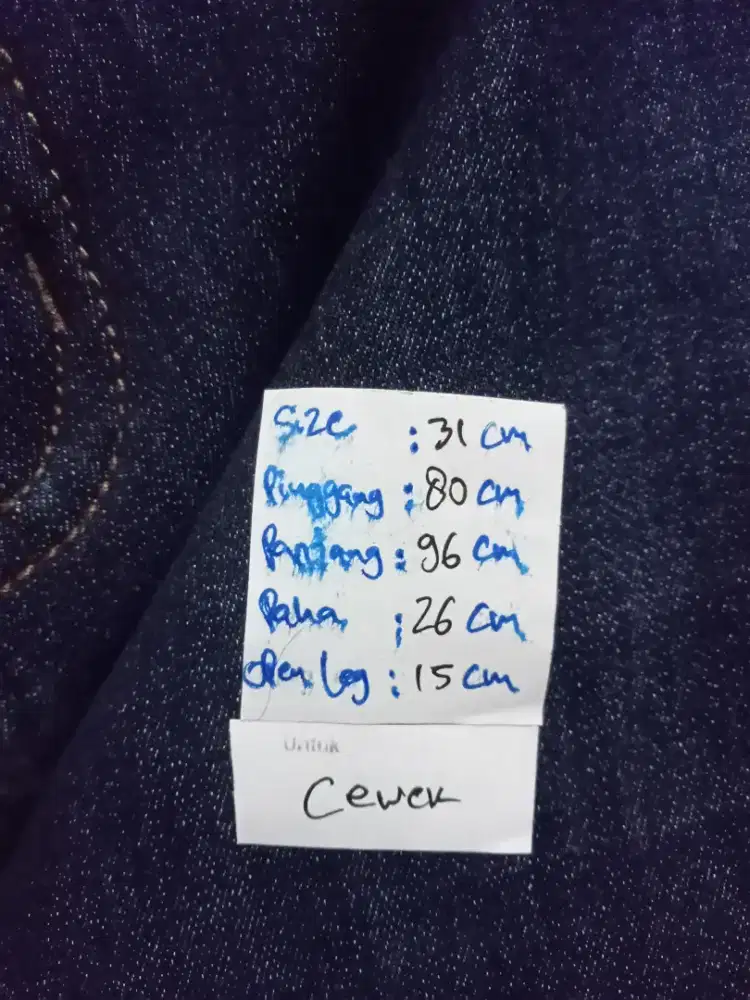 Size : 31 cm
Pinggang : 80 cm
Panjang : 96 cm
Paha : 26 cm
Open leg : 15 cm
Untuk
Cewek